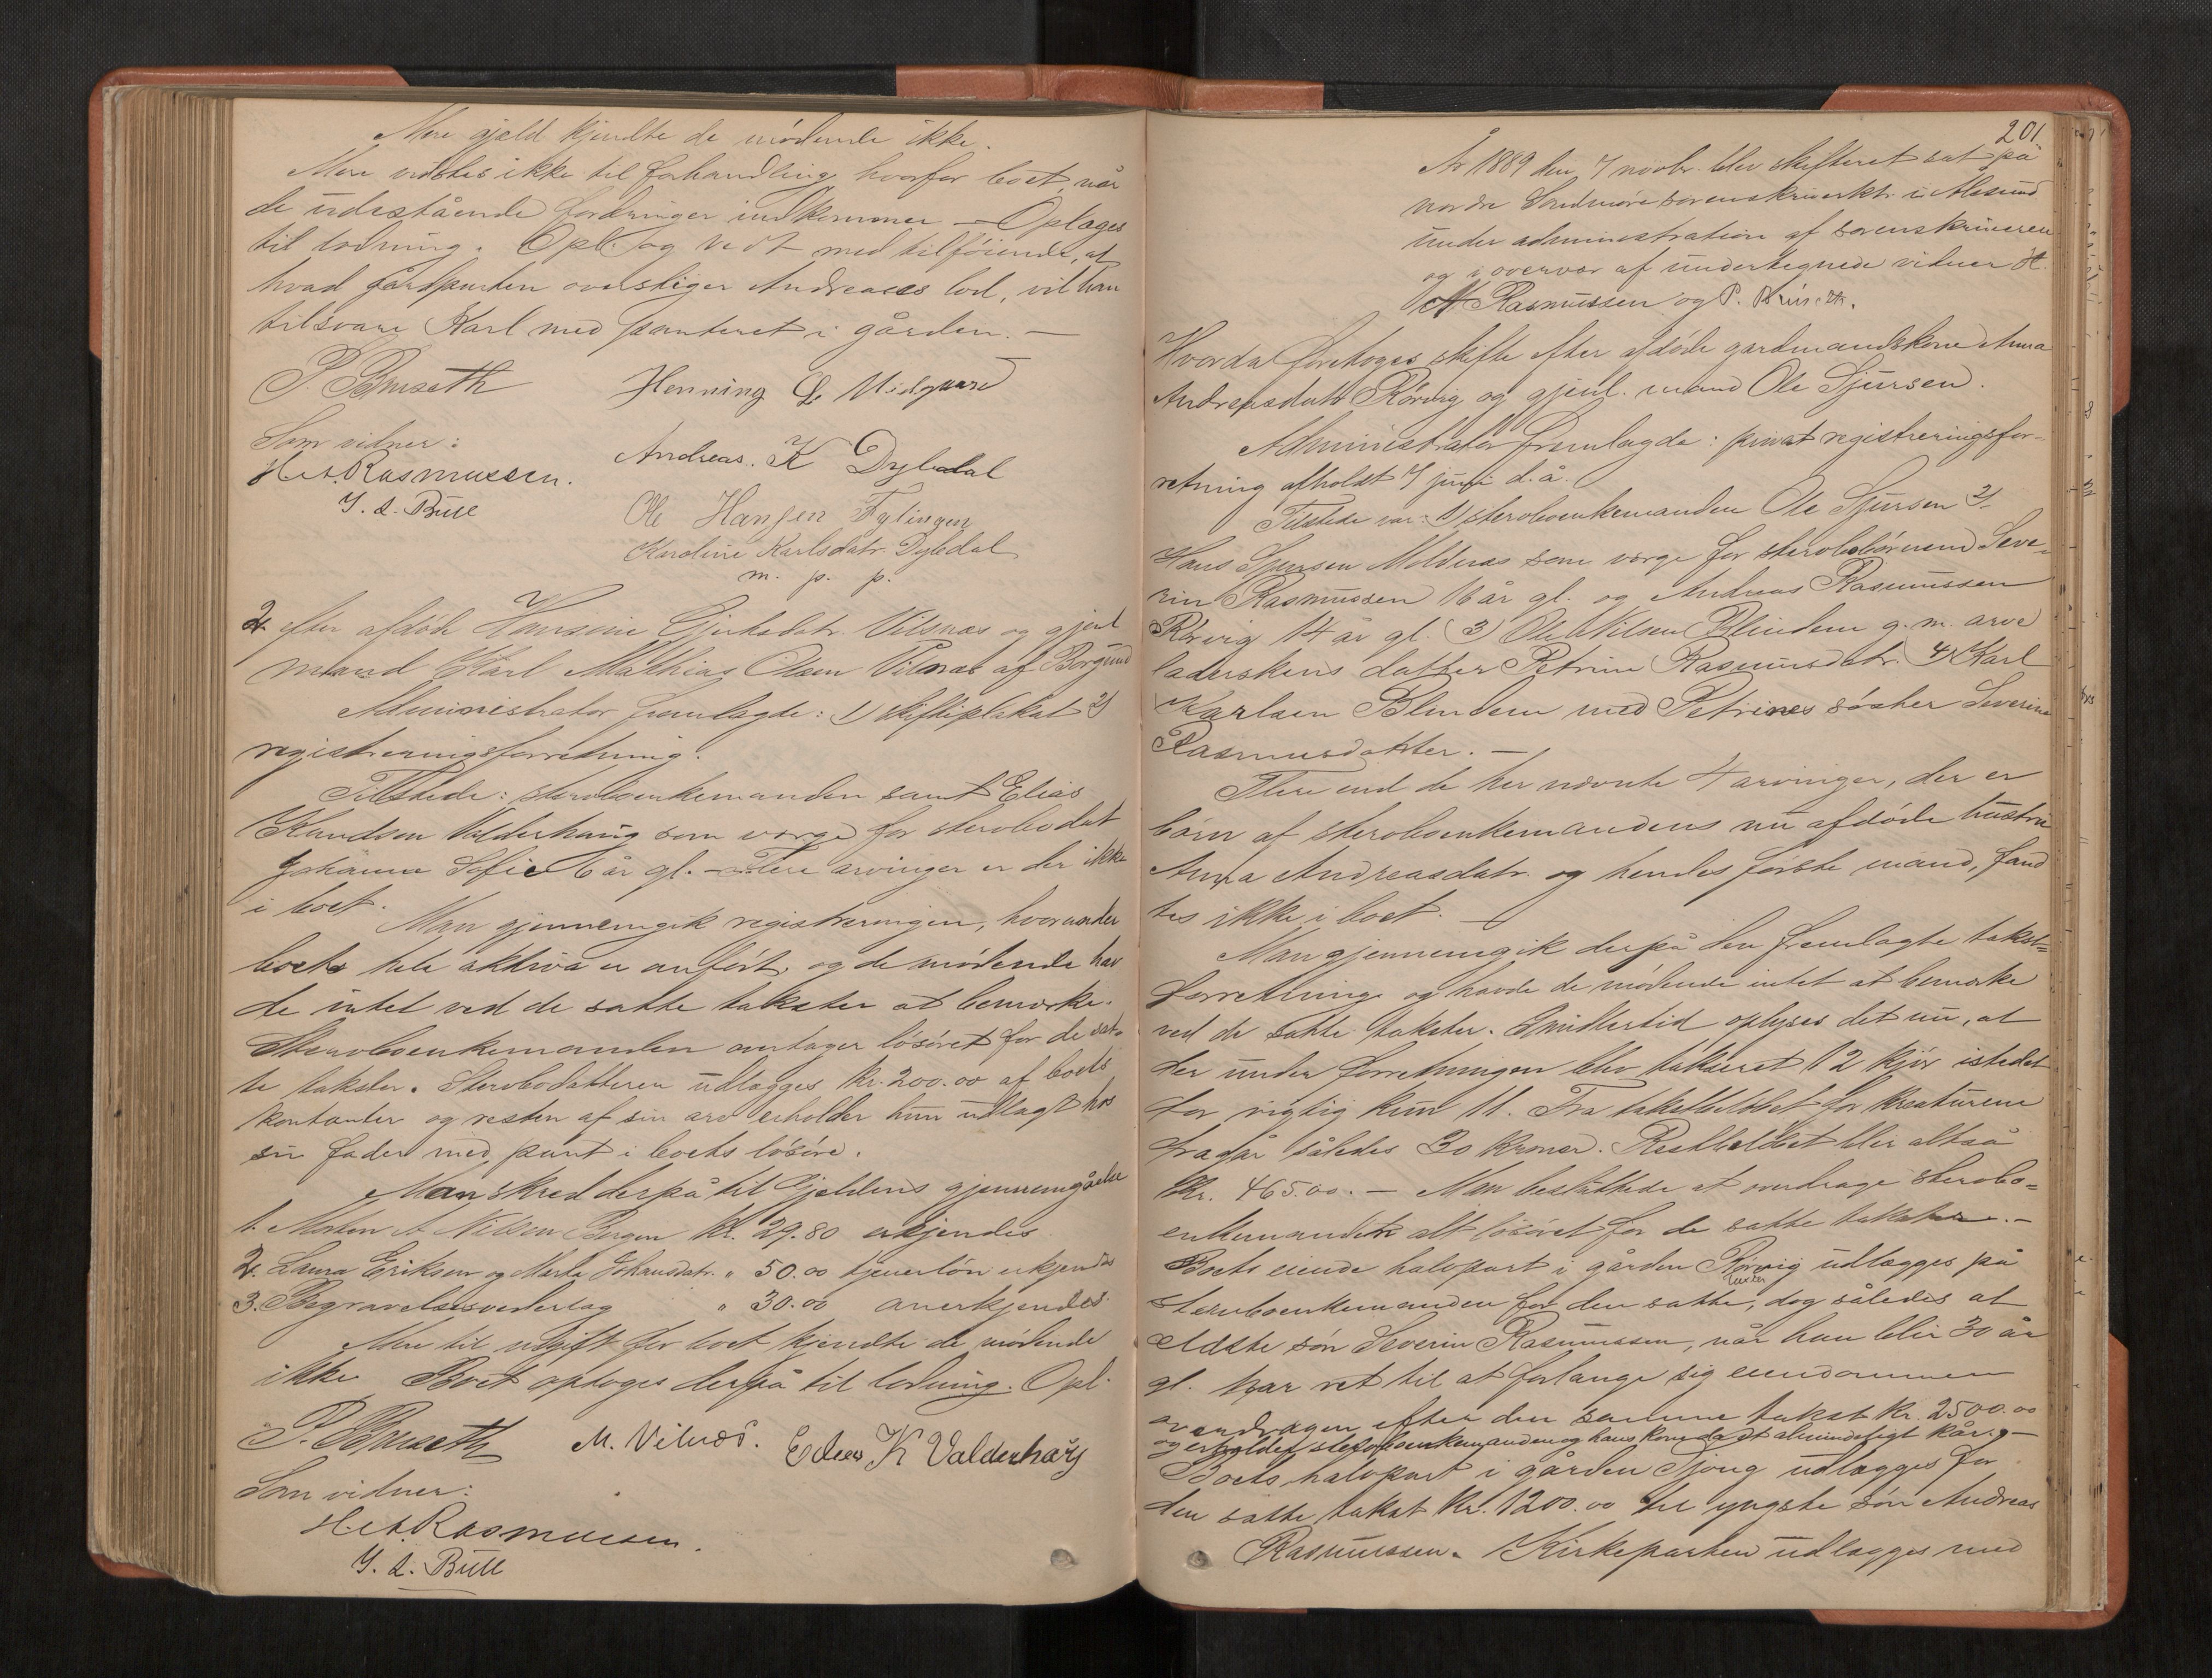 Mere gjæld kjendte de mødende ikke.
Mere vidstes ikke til forhandling hvorfor boet, når
de udestående fordringer indkommer — Optages
til lodning. Opl. og vedt. med tilføiende, at
hvad gårdparten overstiger Andreases lod, vil han
tilsvare Karl med panteret i gården. —
P. Buseth
Henning
Som vidner:
Andreas. K Dybedal
H A Rasmussen.
Ole Hansen Fylingen
Karoline Karlsdatr. Dybdal
m. p. p.
2. efter afdøde Hansine Gjertsdatr. Vilsnæs og gjenl
mand Karl Mathias Olsen Vilnæs af Borgund
Administrator fremlagde: 1) skifteplakat 2)
registreringsforretning.
Tilstede: stervboenkemanden samt Elias
Knudsen Valderhaug som værge for stervbodat
Johanna Sofie 6 år gl. — Flere arvinger er der ikke
i boet.
Man gjennemgik registreringen, hvorunder
boets hele aktiva er anført, og de mødende hav
de intet ved de satte takster at bemærke.
Stervboenkemanden antager løsøret for de sat
te takster. Stervbodatteren udlægges kr. 200.00 af boets
kontanter og resten af sin arv erholder hun udlagt hos
sin fader med pant i boets løsøre.
Man skred derpå til gjældens gjennemgåelse
1. Morten A Nilsen Bergen kr. 29.80 erkjendes
2. Laura Eriksen og Marta Johansdatr. " 50.00 tjenerløn erkjendes
3. Begravelsesvederlag " 30.00 anerkjendes
Mere til udgift for boet kjendte de mødende
ikke Boet optoges derpå til lodning. Opl.
P. Buseth M. Vilnæs. Elias K Valderhaug
Som vidner:
H A Rasmussen.
201.
År 1889 den 7 novbr. blev skifteret sat på
nordre Søndmøre sorenskriverktr. i Ålesund
under administration af sorenskriveren
og i overvær af undertegnede vidner H.
A Rasmussen og P.
Hvorda foretoges skifte efter afdøde gardmandskone Anna
Andreasdatr Rørvig og gjenl. mand Ole Sjursen.
Administrator fremlagde: privat registreringsfor-
retning afholdt 7 juni d.å.
Tilstede var: 1) stervboenkemanden Ole Sjursen 2)
Hans Sjursen Molvær som værge for stervbobørnene Seve-
rin Rasmussen 16 år gl. og Andreas Rasmussen
Rørvig 14 år gl. 3) Ole Nilsen Blindem g. m. arve
laderskens datter Petrine Rasmusdatr. 4) Karl
Karlsen Blindem med Petrines søster Severine
Rasmusdatter. —
Flere end de her nævnte 4 arvinger, der er
børn af stervboenkemandens nu afdøde hustru
Anna Andreasdatr. og hendes første mand, fand
tes ikke i boet. —
Man gjennemgik derpå den fremlagte takst-
forretning og havde de mødende intet at bemærke
ved de satte takster. Imidlertid oplyses det nu, at
der under forretningen blev takseret 12 kjør istedet
for rigtig kun 11. Fra takstbeløbet for kreaturene
fragår således 30 kroner. Restbeløbet blir altså
Kr. 465.00. — Man besluttede at overdrage stervbo-
enkemanden alt løsøret for de satte takster. —
Boets eiende halvpart i gården Rørvig udlægges på
stervboenkemanden for den satte, dog således at
takster
ældste søn Severin Rasmussen, når han blir 30 år
gl. har ret til at forlange sig eiendommen
overdragen efter den samme takst kr. 2500.00
og erholder stervboenkemanden og hans kone da et almindeligt kår. —
Boets halvpart i gården Tjong udlægges for
den satte takst kr. 1200.00 til yngste søn Andreas
Rasmussen. Kirkeparten udlægges med